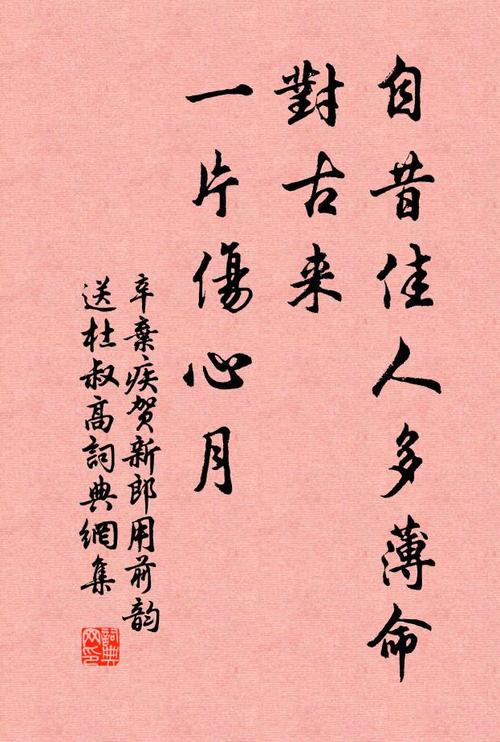 自昔佳人多薄命
對古来
一片傷心月
辛棄疾贺新郎用前韵
送杜叔高詞典網集
詞典网印